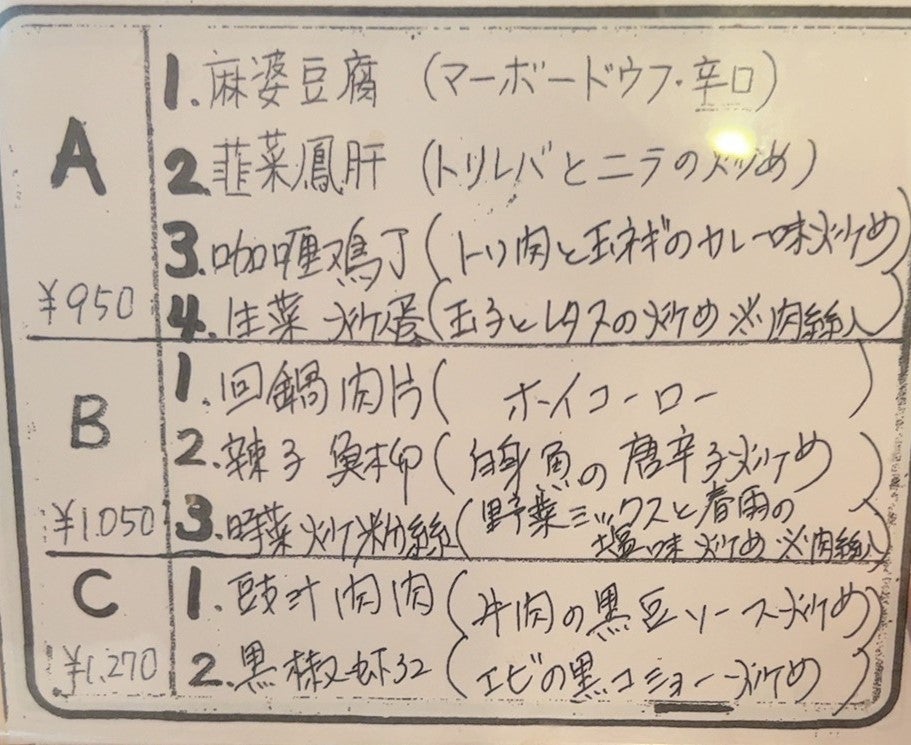 A ¥950
1. 麻婆豆腐 (マーボードウフ・辛口)
2. 韮菜鳳肝 (トリレバとニラの炒め)
3. 咖喱鶏丁 (トリ肉と玉ネギのカレー味炒め)
4. 生菜炒蛋 (玉子とレタスの炒め ※肉絲入)
B ¥1.050
1. 回鍋肉片 (ホイコーロー)
2. 辣子魚柳 (白身魚の唐辛子炒め)
3. 時菜炒粉絲 (野菜ミックスと春雨の
塩味炒め ※肉絲入)
C ¥1.270
1. 豉汁肉 (牛肉の黒豆ソース炒め)
2. 黒椒虾 (エビの黒コショー炒め)